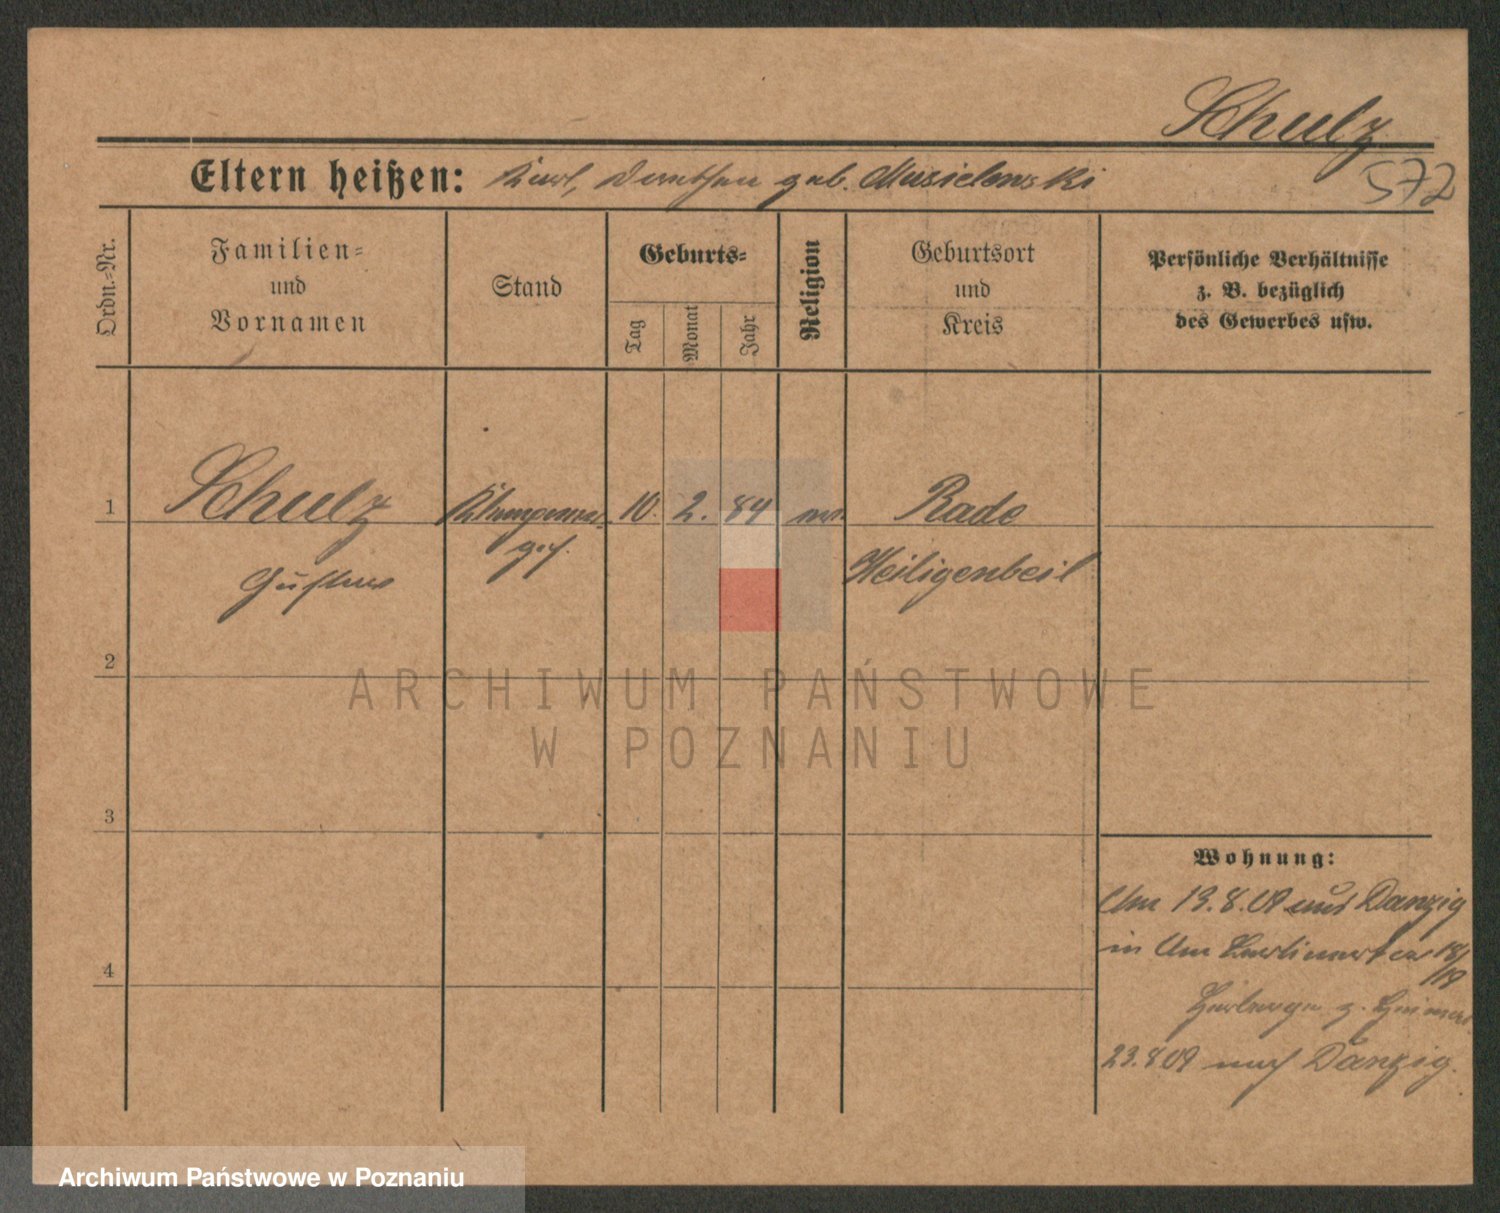 Schulz
572
Eltern heißen: Karl, Dorothea geb. Musielowski
Ordn.-Nr.
Familien-
und
Vornamen
Stand
Geburts-
Tag
Monat
Jahr
Religion
Geburtsort
und
Kreis
Persönliche Verhältnisse
z. B. bezüglich
des Gewerbes usw.
1 Schulz Klempner 10. 2. 84 Rade
ges.
Gustav Heiligenbeil
2
3
4
Wohnung:
Am 13.8.09 aus Danzig
in
Herberge z. Heimat
23.8.09 nach Danzig.
ARCHIWUM PAŃSTWOWE
W POZNANIU
Archiwum Państwowe w Poznaniu